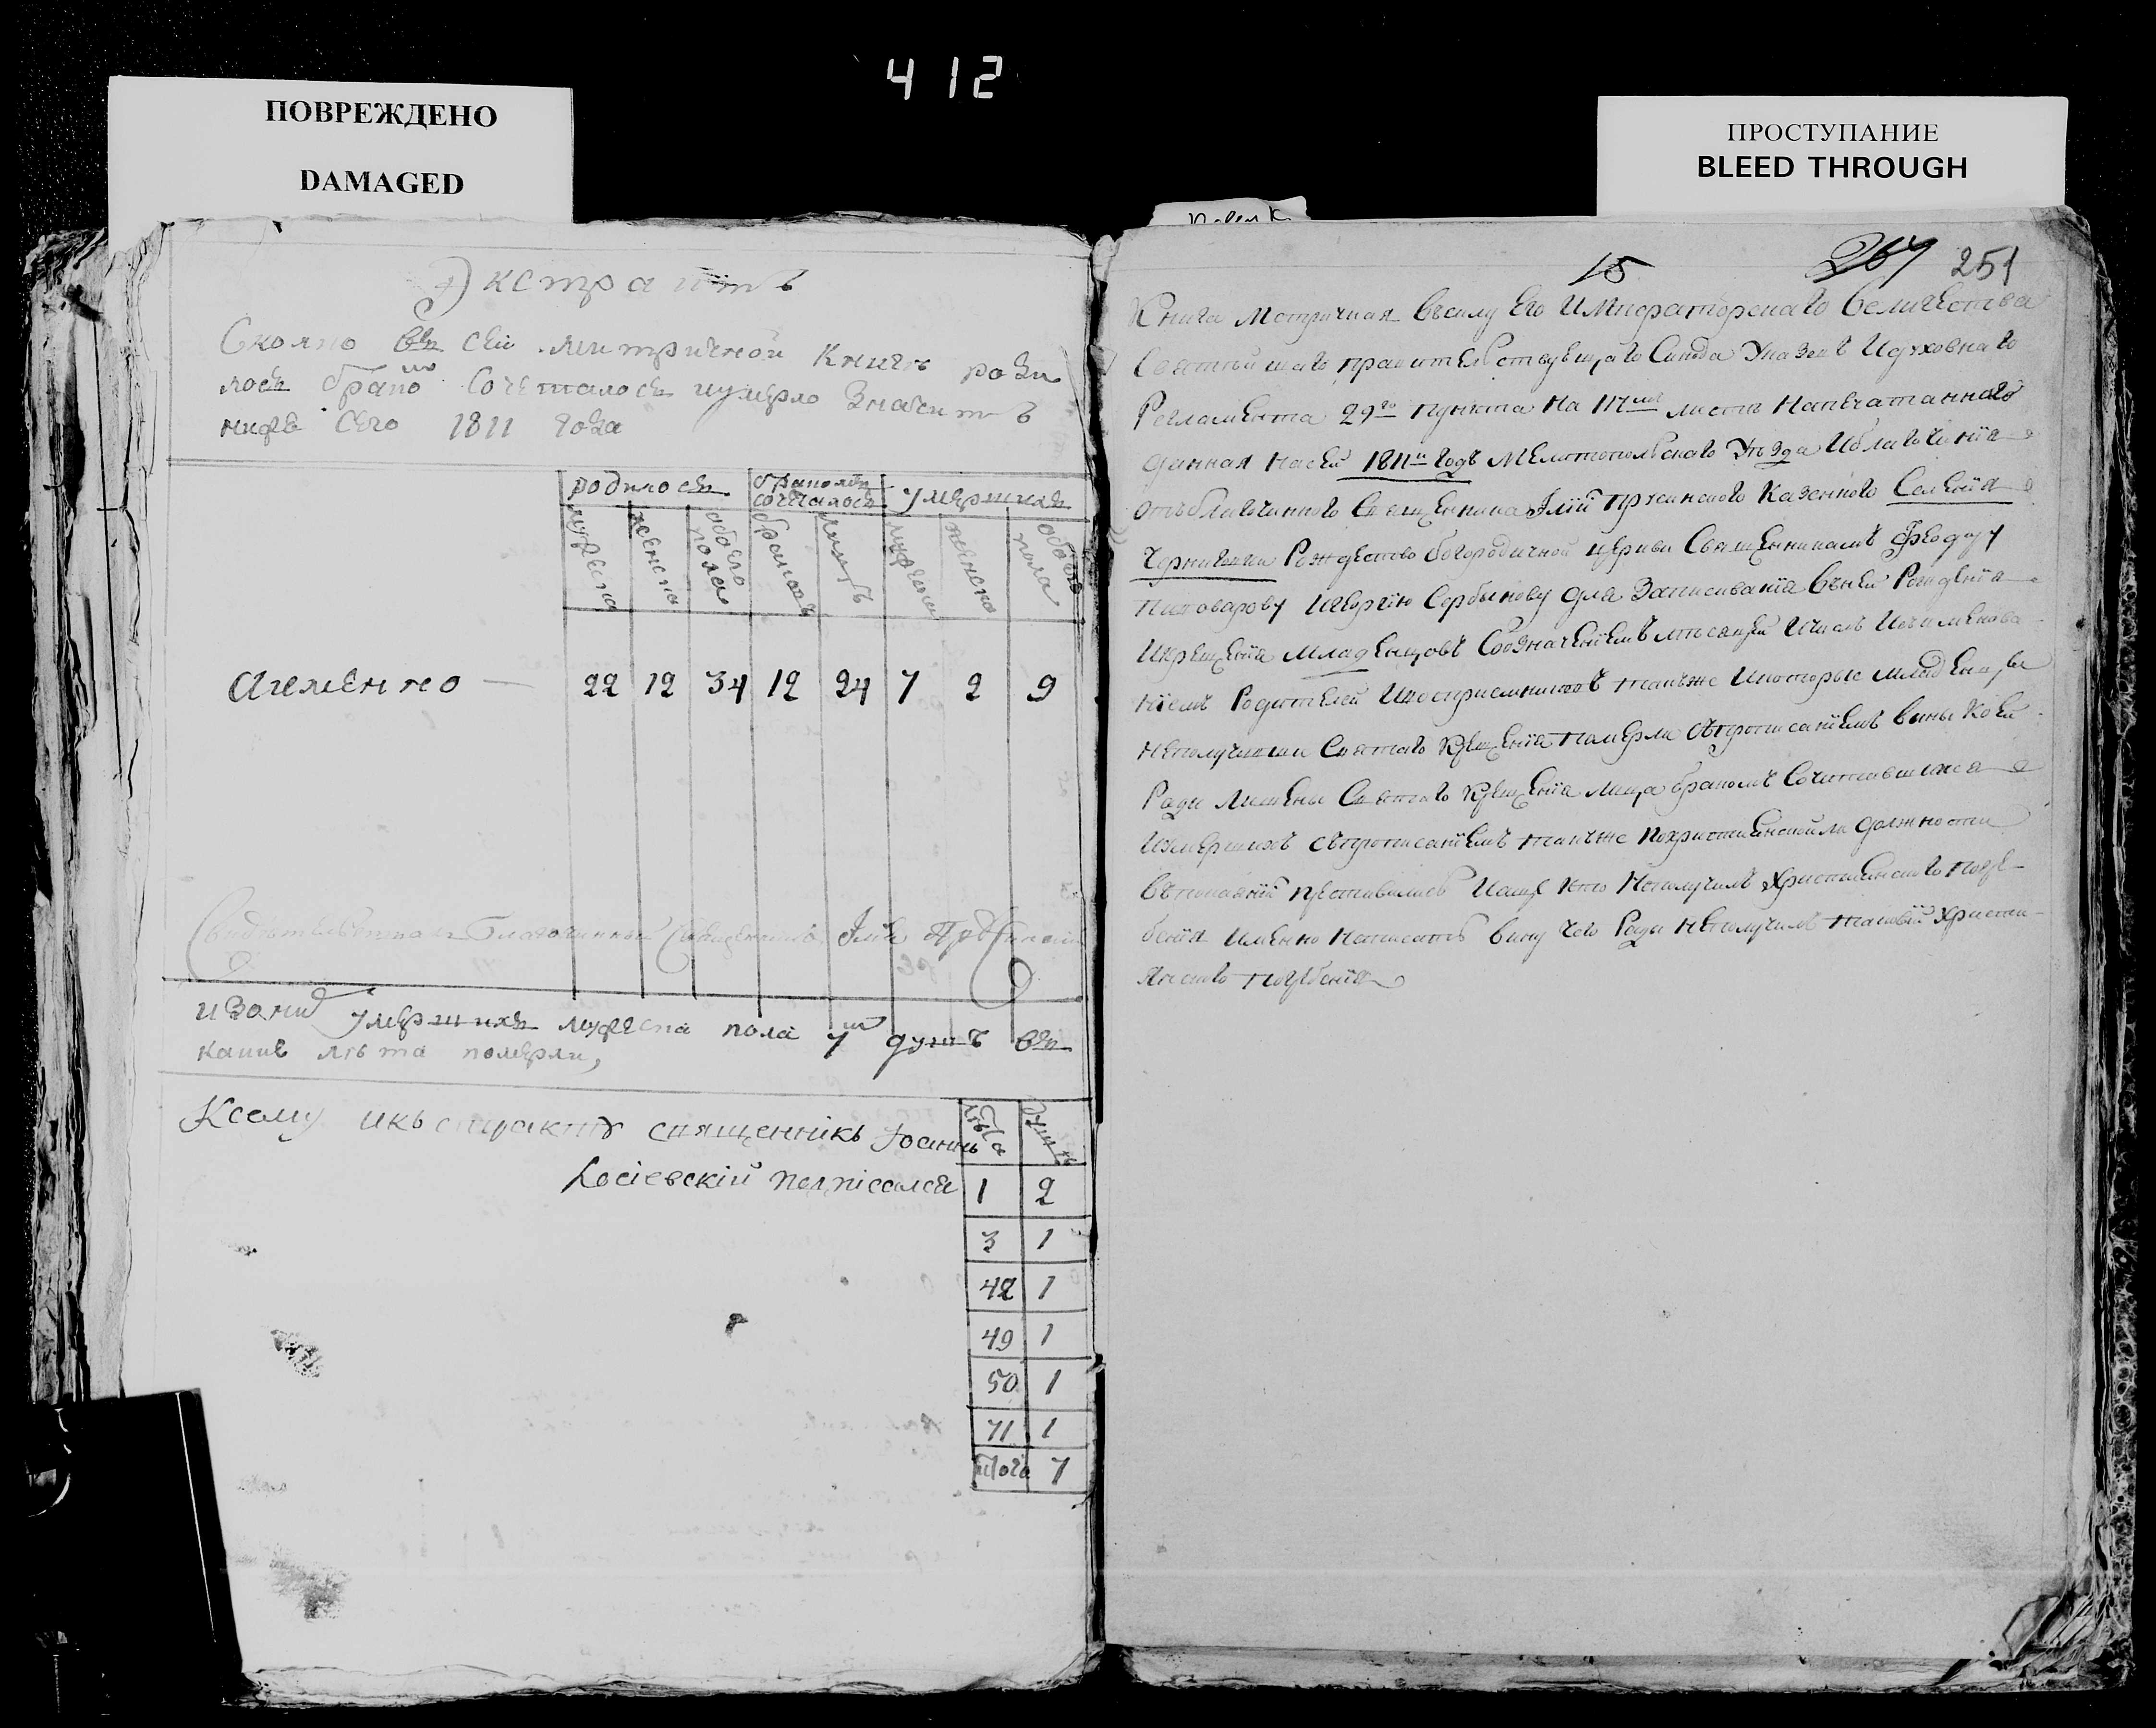 412
ПОВРЕЖДЕНО
DAMAGED
ПРОСТУПАНИЕ
BLEED THROUGH
Экстрактъ
Сколко въ сей митричной книгѣ роди
лось бракомъ сочеталось и умерло значитъ
ниже сего 1811 года
родилось
бракомъ сочеталось
умершихъ
мужеска
женска
обоего пола
браковъ
лицъ
мужеска
женска
обоего пола
а именно 22 12 34 12 24 7 2 9
Свидѣтелствовалъ Благочинный Священникъ Илія
изоныхъ умершихъ мужеска пола 7 душъ въ
какие лѣта померли,
Ксему икъстракту священнікъ Іоаннъ
Косіевскій подпісался
лѣта душъ
1 2
3 1
42 1
49 1
50 1
71 1
итого 7
15 267 251
Книга Метричная Всилу Его Императорскаго Величества
Святѣйшаго правителствующаго Синода Указовъ Идуховнаго
Регламента 29го пункта на листѣ Напечатаннаго
данная насей 1811й годъ Мелитополскаго Уѣзда Иблагочинія
отъ благочиннаго Священника Иліи казенного Селенія
Черниговки Рождество богородичной церкви Священникамъ Феодору
Пивоварову Игеоргію Сербинову для Записиванія Вьней Рожденія
Икрещенія Младенцовъ Собзначеніемъ мѣсяцей Ичислъ Исъименова
ніемъ Родителей Ивосприемниковъ такъже Икоторые младенцы
неполучивши Святаго Крещенія померли Съпрописаніемъ вины Коей
Ради Лишены Святаго Крещенія лица бракомъ Сочетавшихся
Иумершихъ съпрописаніемъ такъже похристианской ли должности
въпокаяніи преставились Иаще кто Неполучилъ Христианскаго погре
бенія Именно Написать вину чего Ради Неполучилъ таковый Христи
янскаго погребенія